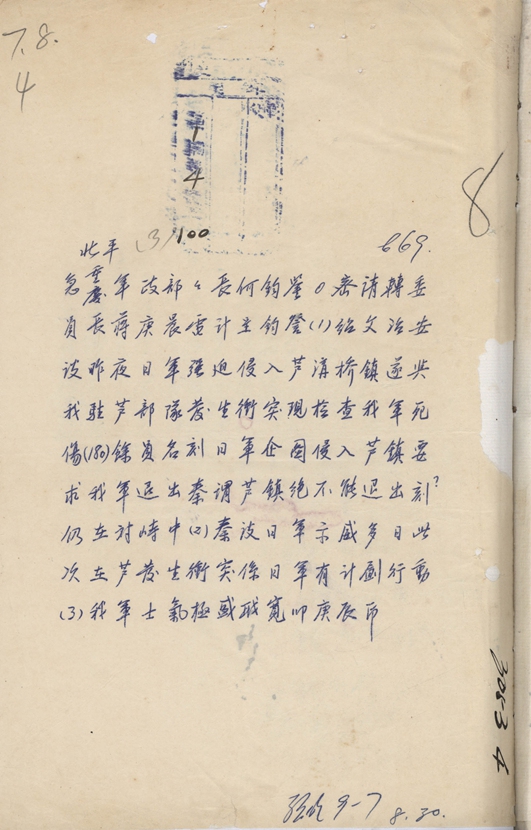 7.8.
4
14
8
北平 13/100 669.
急重慶軍政部々長何鈞鑒0密請轉委
員長蔣庚晨電計呈鈞詧(1)紹文冶安
談昨夜日軍强迫侵入芦溝桥鎮遂與
我駐芦部隊發生衝突現检查我軍死
傷(180)餘員名刻日軍企圖侵入芦鎮要
求我軍退出秦謂芦鎮绝不能退出刻?
仍在対峙中(2)秦談日軍示威多日此
次在芦發生衝突係日軍有计劃行動
(3)我軍士氣極盛 寬叩庚辰印
3053 4
9-7 8.30.